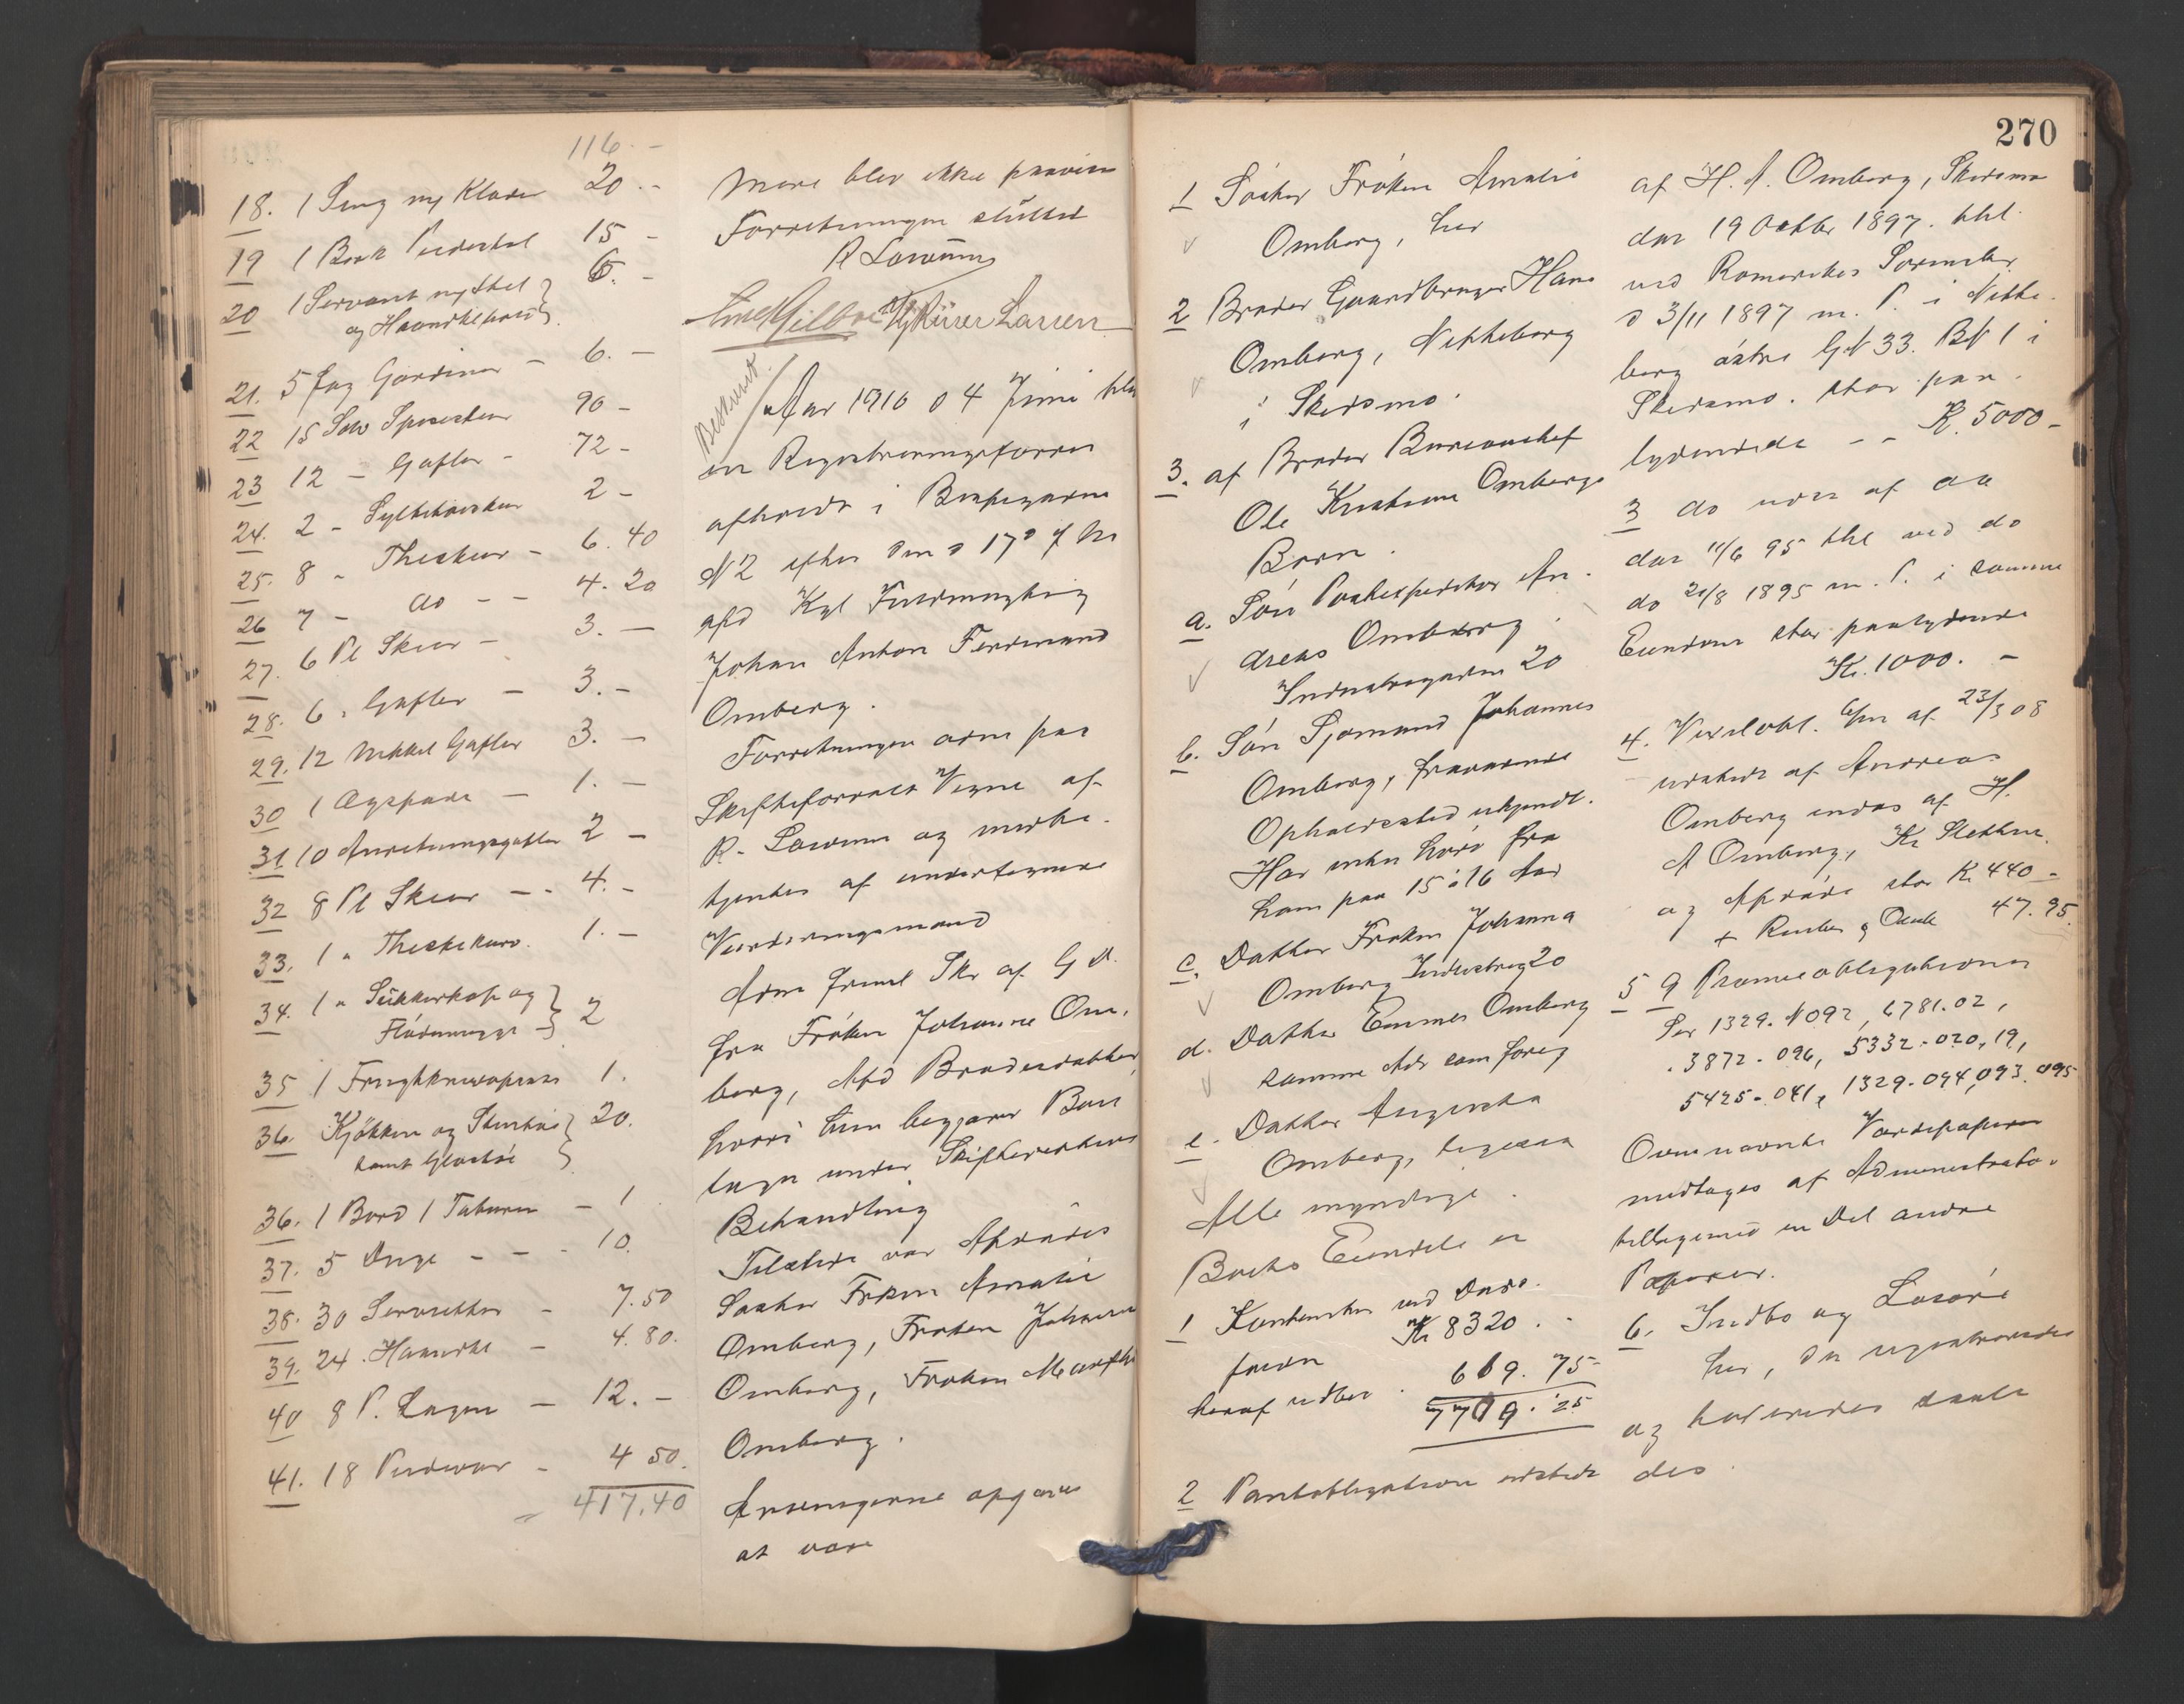 116.-
18. 1 Seng m/ Klæder 20.-
19 1 Bord Piedestal 15 -
20 1 Servant m/ Stel 6. -
og Haandklæ
21. 5 Fag Gardiner - 6. -
22 15 Sølv Spiseskeer 90 -
23 12 - Gafler - 72 -
24. 2 - Syltetøiskeer 2 -
25. 8 - Theskeer - 6.40
26 7 - do - - 4.20
27. 6 Pl Skeer - 3. -
28. 6 - Gafler - 3. -
29. 12 Nikkel Gafler 3. -
30 1 Ægspade - 1. -
31 10 Anretningsgafler 2 -
32 8 Pl Skeer - - 4. -
33. 1 " Theskekurv. 1. -
34. 1 " Sukkerkop og
Flødemugge 2
35 1 Frugtknivs 1.
36. Kjøkken og Stentøi
samt Glastøi 20.
36. 1 Bord 1 Taburet - 1
37. 5 Duge - - - 10.
38. 30 Servietter - 7.50
39. 24 Haandkl - 4.80.
40 8 P. Lagen - 12. -
41. 18 Pudevar - 4 50.
417.40
Mere blev ikke paavist
Forretningen sluttet
R Larsen
Beskrevet.
Aar 1910 d 4 Juni blev
en Registreringsforret
afholdt i Bispegaden
N 2 efter den d 17de f M
afd Kgl Fuldmægtig
Johan Anton Ferdinand
Omberg.
Forretningen adm paa
Skifteforvalt Vegne af
R. og medbe-
tjentes af undertegnede
Vurderingsmænd
Adm freml Skr af G D.
fra Frøken Johanne Om-
berg, Afd Broderdatter
hvori hun begjærer Boet
tagen under Skifterettens
Behandling
Tilstede var Afdødes
Søster Frøken Amalie
Omberg, Frøken Johanne
Omberg, Frøken
Omberg.
Arvingerne opgaves
at være
270
1 Søster Frøken Amalie
Omberg, her
2 Broder Gaardbruger Hans
Omberg, Nitteberg
i Skedsmo.
3. af Broder Bureauchef
Ole Kristian Ombergs
Børn.
a. Søn Postexpeditør An-
dreas Omberg
Industrigaden 20
b. Søn Sjømand Johannes
Omberg, fraværende
Opholdssted ukjendt.
Har intet hørt fra
ham paa 15 à 16 Aar
c. Datter Frøken Johanna
Omberg Industrig 20
d. Datter Emma Omberg
samme Adr som forrig
e. Datter Augusta
Omberg, ligesaa
Alle myndige.
Boets Eiendele er
1 Kontanter ved Døds-
faldet Kr 8320. -
heraf udbet. 619.75
7709.25
2 Pantobligation udstedt
af H. A. Omberg, Skedsmo
dat 19 Oktbr 1897. thl.
ved Romerikes Sorenskr
d 3/11 1897 m. P. i Nitte-
berg østre GN 33. BN 1 i
Skedsmo. stor paa-
lydende - - K. 5000 -
3 do udst af do
dat 11/6 95 thl ved do
do 21/8 1895 m. P. i samme
Eiendom stor paalydende
Kr. 1000. -
4. Vexelobl. af 23/3 08
udstedt af Andreas
Omberg endos af H.
A Omberg, Kr Sletten
og Afdøde stor K. 440 -
+ Renter & Omk 47.95.
5 9 Præmieobligationer
Ser 1329. N 092, 6781.02,
3872 - 096, 5332 - 020, 19,
5425 - 041, 1329 - 094, 093. 095
Ovennævnte Værdipapirer
modtages af Administrator
tilligemed en Del andre
Papirer.
6. Indbo og Løsøre
her, der registreredes
og taxeredes saale
des.